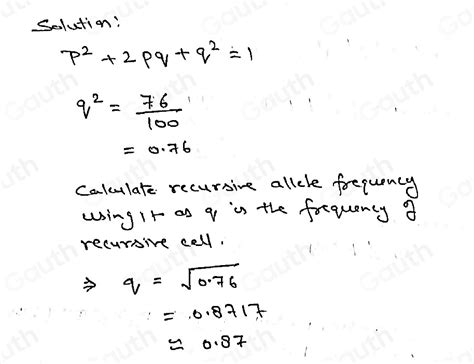 Solution:
P² + 2pq + q² = 1
q² = 76/100
= 0.76
Calculate recursive allele frequency
using it as q is the frequency of
recursive cell.
⇒ q = √0.76
= 0.8717
≈ 0.87